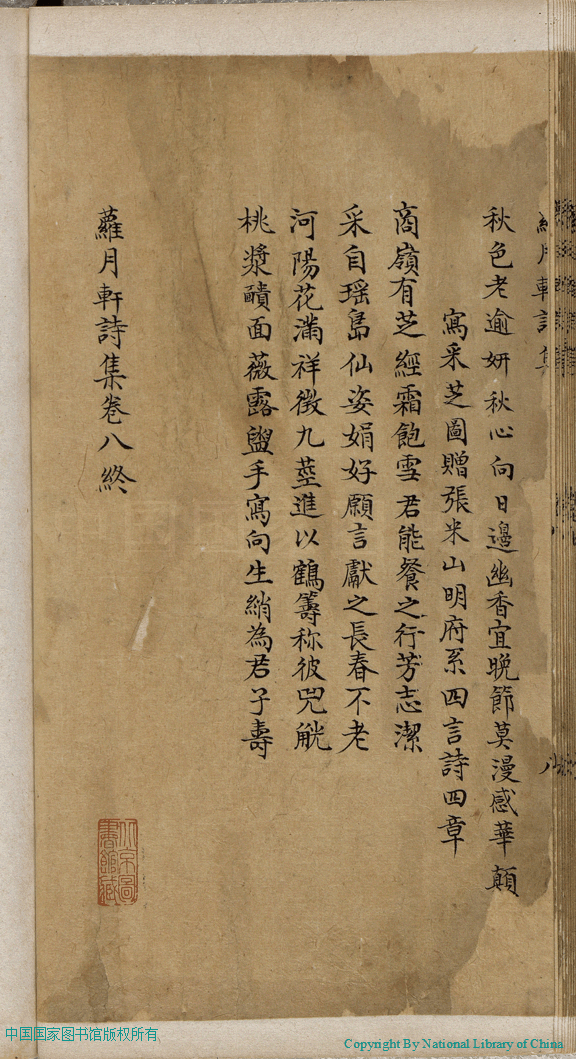 秋色老逾妍秋心向日邊幽香宜晚節莫漫感華顛
寫采芝圖贈張米山明府系四言詩四章
商嶺有芝經霜飽雪君能餐之行芳志潔
采自瑶島仙姿娟好願言獻之長春不老
河陽花滿祥徵九莖進以鶴籌称彼兕觥
桃漿靧面薇露盥手寫向生綃為君子壽
蘿月軒詩集卷八終
北京圖書館藏
中国国家图书馆版权所有
Copyright By National Library of China